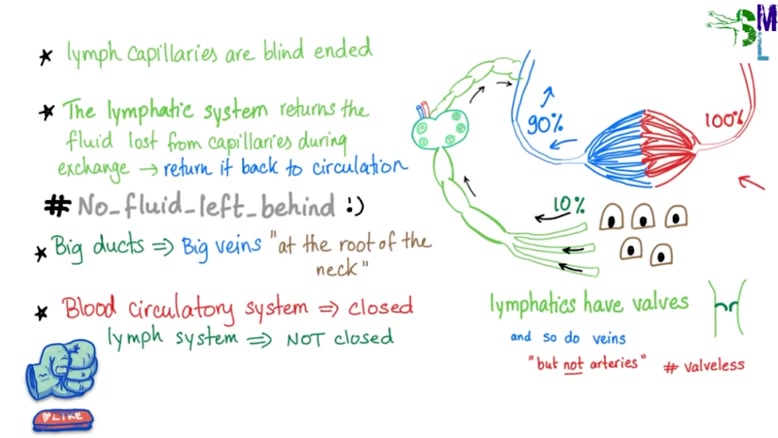 ★ lymph capillaries are blind ended
★ The lymphatic system returns the
fluid lost from capillaries during
exchange → return it back to circulation
# No_fluid_left_behind :)
★ Big ducts ⇒ Big veins "at the root of the
neck"
★ Blood circulatory system ⇒ closed
lymph system ⇒ NOT closed
LIKE
SML
90%
100%
10%
lymphatics have valves
and so do veins
"but not arteries" # valveless